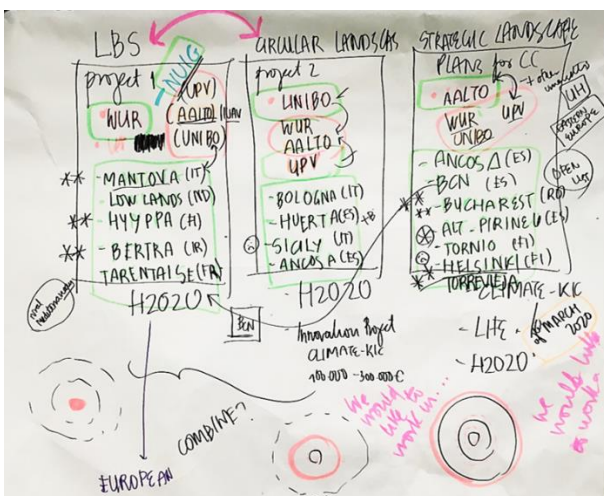 LBS
project 1
NUIG
(UPV)
(AALTO)
WUR
(UNIBO)
** - MANTOVA (IT)
- LOW LANDS (ND)
** - HYYPPA (FI)
** - BERTRA (IR)
TARENTAISE (FR)
H2020
EUROPEAN
CIRCULAR LANDSCAS
project 2
UNIBO
WUR
AALTO
UPV
- BOLOGNA (IT)
- HUERTA (ES)
- SICILY (IT)
- ANCOSA (ES)
- H2020
BCN
Innovation Project
CLIMATE-KIC
100.000 - 300.000 €
COMBINE?
We would like to work in...
STRATEGIC LANDSCAPE
PLANS for CC
AALTO
UPV
WUR
UNIBO
UH
EASTERN EUROPE
OPEN LIST
- ANCOSA (ES)
- BCN (ES)
** - BUCHAREST (RO)
* ALT-PIRINEU (ES)
- TORNIO (FI)
- HELSINKI (FI)
** TORREVIEJA
CLIMATE-KIC
- LIFE
MARCH 2020
- H2020
We would like to work a...